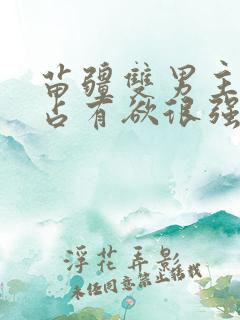 苗疆雙男主
占有欲很强
浮花弄影
未经同意禁止转载